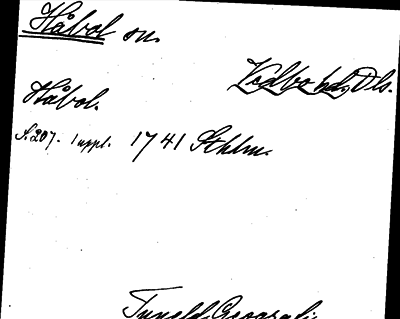 Håbol sn.
Vedbo hd, Dls.
Håbol.
S. 207. 1 uppl. 1741 Sthlm.
Tuneld, Geografi